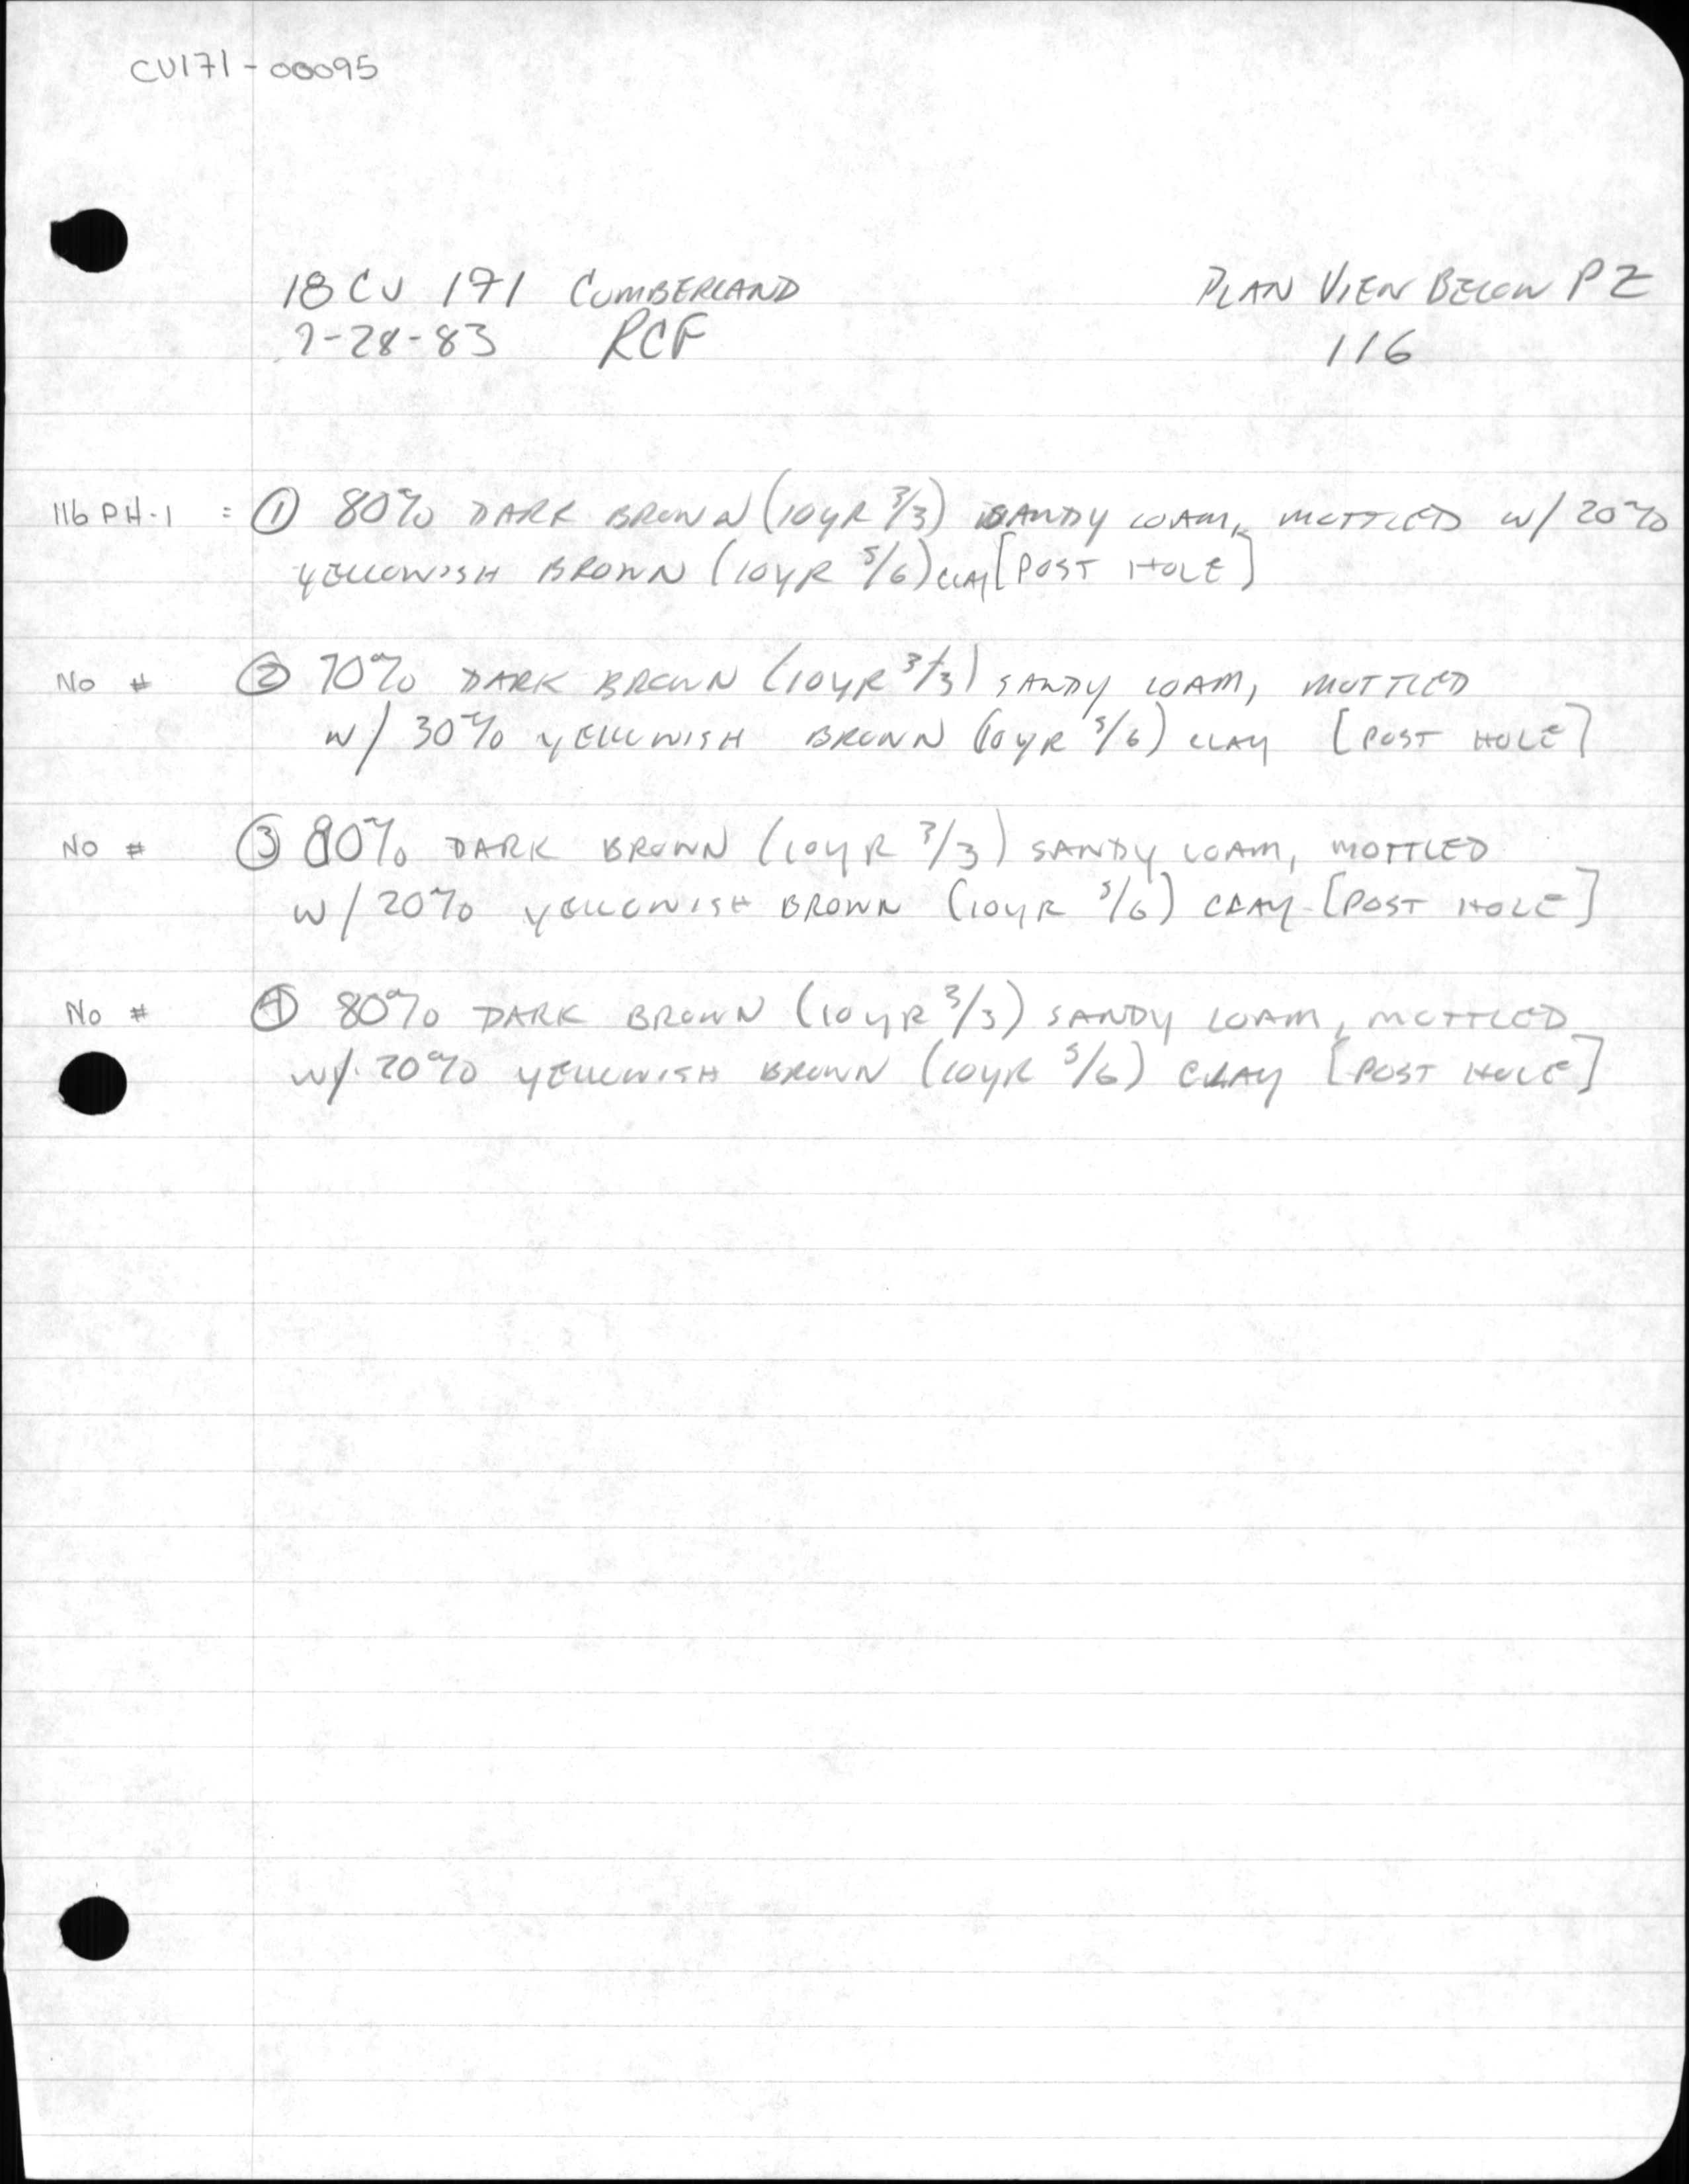 CU171-00095
18 CU 171 CUMBERLAND PLAN VIEW BELOW PZ
7-28-83 RCF 116
116 PH-1 = ① 80% DARK BROWN (10YR 3/3) SANDY LOAM, MOTTLED W/ 20%
YELLOWISH BROWN (10YR 5/6) CLAY [POST HOLE]
No # ② 70% DARK BROWN (10YR 3/3) SANDY LOAM, MOTTLED
W/ 30% YELLOWISH BROWN (10YR 5/6) CLAY [POST HOLE]
No # ③ 80% DARK BROWN (10YR 3/3) SANDY LOAM, MOTTLED
W/ 20% YELLOWISH BROWN (10YR 5/6) CLAY [POST HOLE]
No # ④ 80% DARK BROWN (10YR 3/3) SANDY LOAM, MOTTLED
W/ 20% YELLOWISH BROWN (10YR 5/6) CLAY [POST HOLE]